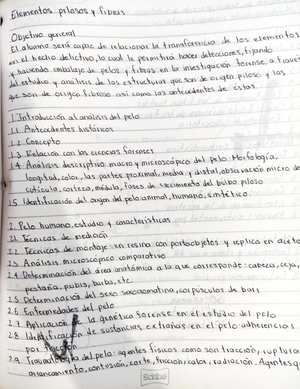 Elementos pilosos y fibras
Objetivo general
El alumno será capaz de relacionar la transferencia de los elementos
en el hecho delictivo, lo cual le permitira hacer detecciones, fijando
y haciendo embalaje de pelos y fibras en la investigación forense, a través
del estudio y análisis de las estructuras que son de origen piloso y las
que son de origen fibroso asi como los antecedentes de éstas.
1. Introducción al análisis del pelo
1.1 Antecedentes históricos
1.2 Concepto
1.3 Relación con las ciencias forenses
1.4 Análisis descriptivo macro y microscópico del pelo. Morfología,
longitud, color, las partes proximal, media y distal, observación micro de
cutícula, corteza, médula, fases de crecimiento del bulbo piloso
1.5 Identificación del origen del pelo: animal, humano, sintético.
2. Pelo humano, estudio y características
2.1 Técnicas de medición
2.2 Técnicas de montaje: en resina con portaobjetos y replica en aceto
2.3 Análisis microscópico comparativo
2.4 Determinación del área anatómica a la que corresponde: cabeza, ceja,
pestaña, pubis, barba, etc.
2.5 Determinación del sexo sexocromatina, corpúsculos de barr
2.6 Enfermedades del pelo
2.7 Aplicación de la genética forense en el estudio del pelo
2.8 Identificación de sustancias extrañas en el pelo adherencias
por fricción
2.9 Traumatología del pelo: agentes físicos como son tracción, ruptura
arrancamiento, contusión, corte, fricción calor, radiación. Agentes q
Scribe